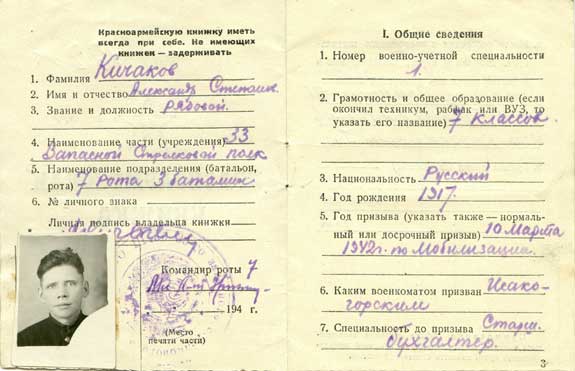 Красноармейскую книжку иметь
всегда при себе. Не имеющих
книжек — задерживать
1. Фамилия Кичаков
2. Имя и отчество Александр
3. Звание и должность рядовой.
4. Наименование части (учреждения) 33
Запасной Стрелковой полк
5. Наименование подразделения (батальон,
рота) 7 рота 3 батальон
6. № личного знака
Личная подпись владельца книжки
Командир роты 7
194 г.
(Место
печати части)
I. Общие сведения
1. Номер военно-учетной специальности
1.
2. Грамотность и общее образование (если
окончил техникум, рабфак или ВУЗ, то
указать его название) 7 классов.
3. Национальность Русский
4. Год рождения 1917.
5. Год призыва (указать также — нормаль-
ный или досрочный призыв) 10 Марта
1942 г. по мобилизации.
6. Каким военкоматом призван Исако-
горским
7. Специальность до призыва Старш.
бухгалтер.
3